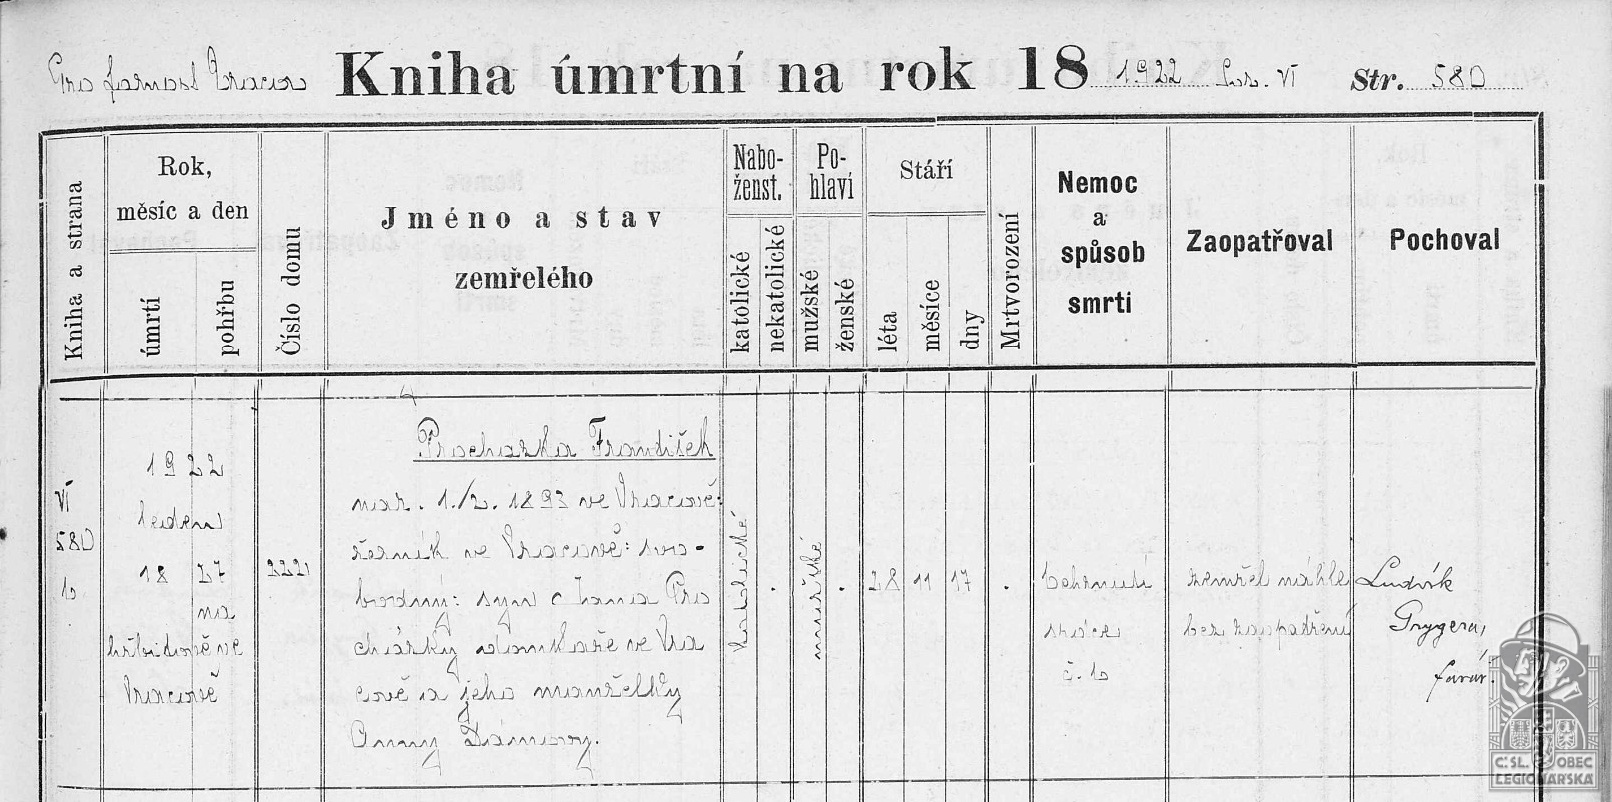 Pro farnost Vracov Kniha úmrtní na rok 18 1922 Sv. VI Str. 580
Kniha a strana
Rok,
měsíc a den
úmrtí
pohřbu
Číslo domu
Jméno a stav
zemřelého
Nabo-
ženst.
katolické
nekatolické
Po-
hlaví
mužské
ženské
Stáří
léta
měsíce
dny
Mrtvorození
Nemoc
a
spůsob
smrti
Zaopatřoval
Pochoval
VI
580
10
1922
leden
18 27
na
hřbitově ve
Vracově
222
Procházka František
nar. 1./2. 1893 ve Vracově:
řezník ve Vracově: svo-
bodný: syn Jana Pro
cházky domkaře ve Vra
cově a jeho manželky
Anny
katolické
.
mužské
.
28 11 17
.
ochrnutí
srdce
č. 10
zemřel náhle
bez zaopatření
Ludvík
Grygera,
farář.
ČSL. OBEC
LEGIONÁŘSKÁ